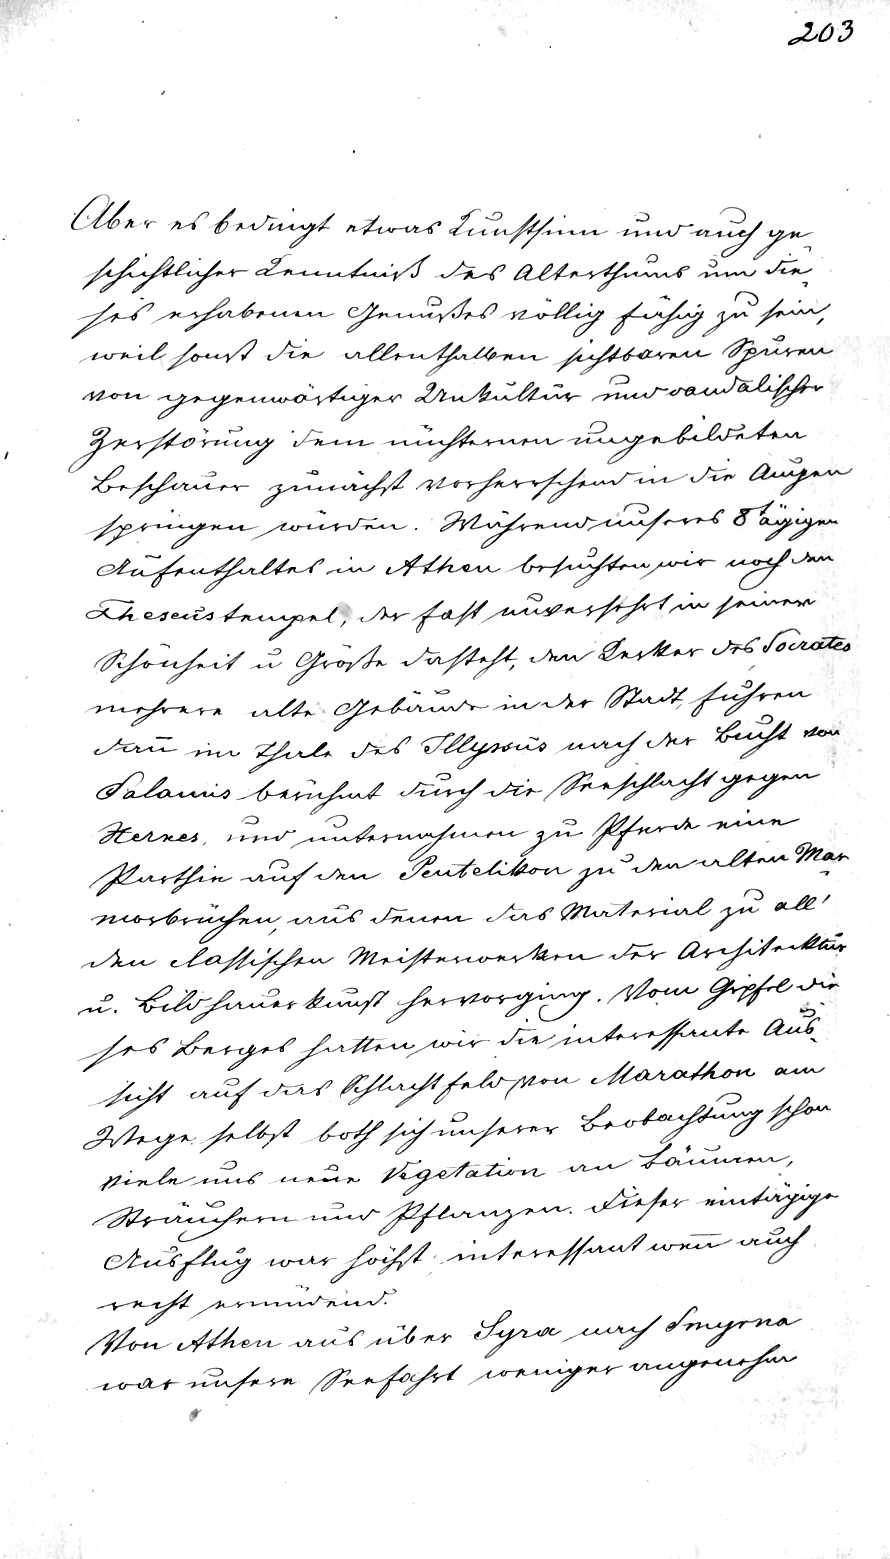 203
Aber es bedingt etwas Kunstsinn und auch ge
schichtlicher Kenntniß des Alterthums um die-
ses erhabenen Genußes völlig fähig zu sein,
weil sonst die allenthalben sichtbaren Spuren
von gegenwärtiger Unkultur und vandalischer
Zerstörung dem nüchternen ungebildeten
Beschauer zunächst vorherrschend in die Augen
springen würden. Während unseres 8tägigen
Aufenthaltes in Athen besuchten wir noch den
Theseustempel, der fast unversehrt in seiner
Schönheit u Größe dasteht, den Kerker des Socrates
mehrere alte Gebäude in der Stadt, fuhren
dan̄ im Thale des Illyssus nach der Bucht von
Salamis berühmt durch die Seeschlacht gegen
Xerxes, und unternahmen zu Pferde eine
Parthie auf den Pentelikon zu den alten Mar-
morbrüchen, aus denen das Material zu all'
den classischen Meisterwerken der Architecktur
u. Bildhauerkunst hervorging. Vom Gipfel die
ses Berges hatten wir die interessante Aus-
sicht auf das Schlachtfeld von Marathon am
Wege selbst both sich unserer Beobachtung schon
viele uns neue Vegetation an Bäumen,
Sträuchern und Pflanzen. Dieser eintägige
Ausflug war höchst interessant wen̄ auch
recht ermüdend.
Von Athen aus über Syra nach Smyrna
war unsere Seefahrt weniger angenehm